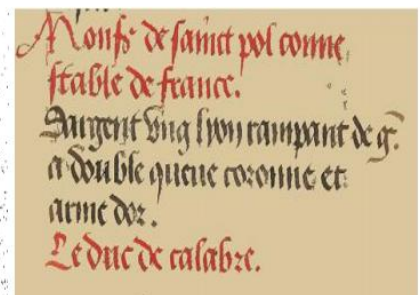 Monsr de sainct pol conne
stable de france.
Dargent vng lyon rampant de g.
a double queue coronne et
arme dor.
Le duc de calabre.